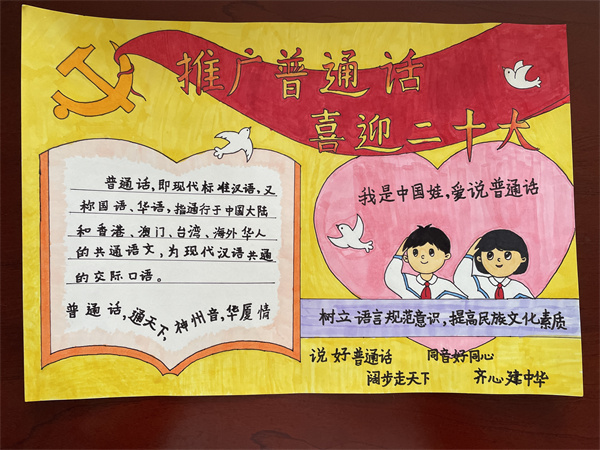 推广普通话
喜迎二十大
普通话,即现代标准汉语,又
称国语、华语,指通行于中国大陆
和香港、澳门、台湾、海外华人
的共通语文,为现代汉语共通
的交际口语。
普通话,通天下,神州音,华厦情
我是中国娃,爱说普通话
树立语言规范意识,提高民族文化素质
说好普通话 同音好同心
阔步走天下 齐心建中华